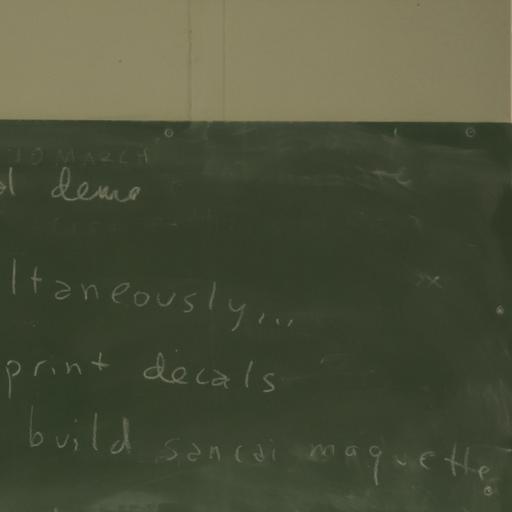 demo
ltaneously...
print decals
build sancai maquette